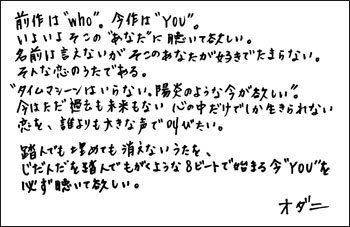 前作は"who"。今作は"YOU"。
いよいよそこの"あなた"に聴いて欲しい。
名前は言えないがそこのあなたが好きでたまらない。
そんな恋のうたである。
"タイムマシーンはいらない。陽炎のような今が欲しい"。
今はただ過去も未来もない 心の中だけでしか生きられない
恋を、誰よりも大きな声で叫びたい。
踏んでも埋めても消えないうたを、
じだんだを踏んでもがくような8ビートで始まる今"YOU"を
必ず聴いて欲しい。
オダニ